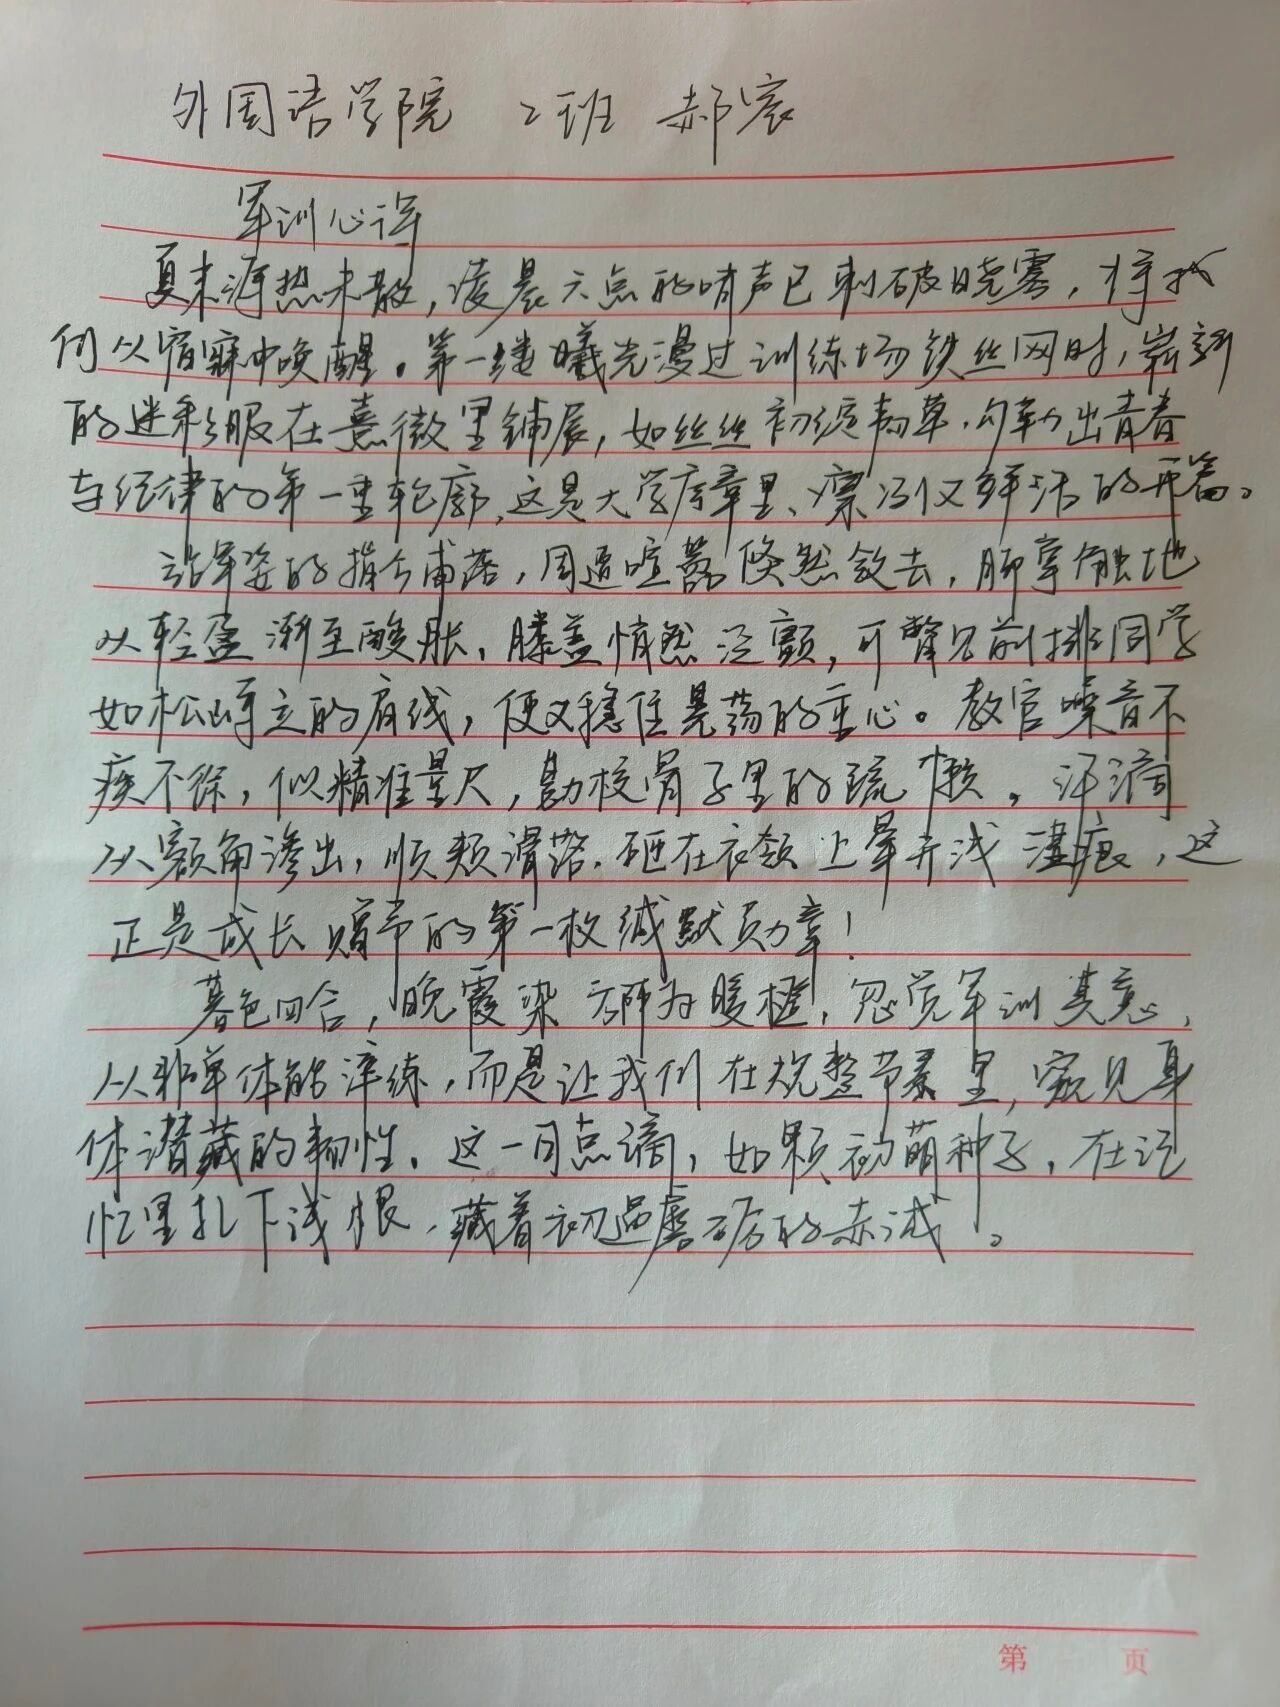 外国语学院 2班 郝宸
军训心得
夏末溽热未散,凌晨六点的哨声已刺破晓雾,将我
们从宿寐中唤醒。第一缕曦光漫过训练场铁丝网时,崭新
的迷彩服在熹微里铺展,如丝丝初绽韧草,勾勒出青春
与纪律的第一重轮廓,这是大学序章里、凛冽又鲜活的开篇。
站军姿的指令甫落,周遭喧嚣倏然敛去,脚掌触地
从轻盈渐至酸胀,膝盖悄然泛颤,可瞥见前排同学
如松峙立的肩线,便又稳住晃荡的重心。教官嗓音不
疾不徐,似精准量尺,勘校骨子里的疏懒。汗滴
从额角渗出,顺颊滑落,砸在衣领上晕开浅湿痕,这
正是成长赠予的第一枚缄默勋章!
暮色四合,晚霞染 为暖橙,忽觉军训真意,
从非单体能淬练,而是让我们在规整节奏里,窥见身
体潜藏的韧性。这一日点滴,如颗初萌种子,在记
忆里扎下浅根,藏着初遇磨砺的赤诚。
第 页